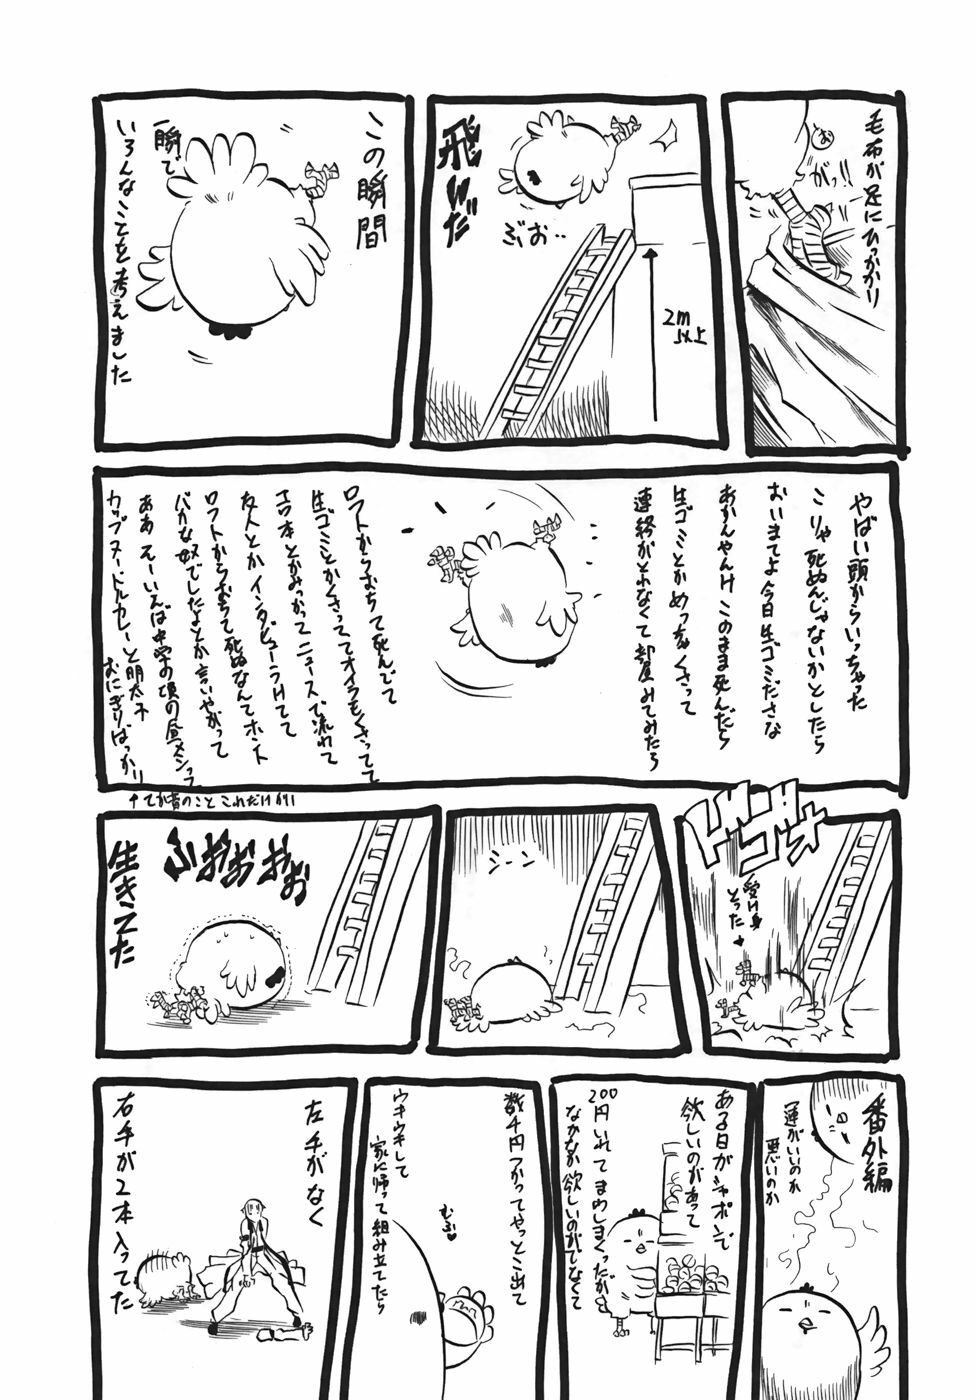 毛布が足にひっかかり
お
がっ!!
飛んだ
ぶお‥
2m
以上
この瞬間
一瞬で
いろんなことを考えました
やばい頭からいっちゃった
こりゃ死ぬんじゃないかとしたら
おいまてよ今日生ゴミださな
あかんやんけこのまま死んだら
生ゴミとかめっちゃくさって
連絡がとれなくて部屋みてみたら
ロフトからおちて死んでて
生ゴミとかくさっててオイラもくさってて
エロ本とかみつかってニュースで流れて
友人とかインタビューうけてて
ロフトからおちて死ぬなんてホント
バカな奴でしたよとか言いやがって
ああ そーいえば中学の頃の昼メシって
カップヌードルカレーと明太子
おにぎりばっかり
↑てか昔のこと これだけかい
ドゴォ
受け身
とった
シーン
ふおおおお
生きてた
番外編
運がいいのか
悪いのか
ある日ガシャポンで
欲しいのがあって
200円いれてまわしまくったが
なかなか欲しいのがでなくて
数千円つかってやっとこ出て
ウキウキして
家に帰って組み立てたら
むふ♥
左手がなく
右手が2本入ってた